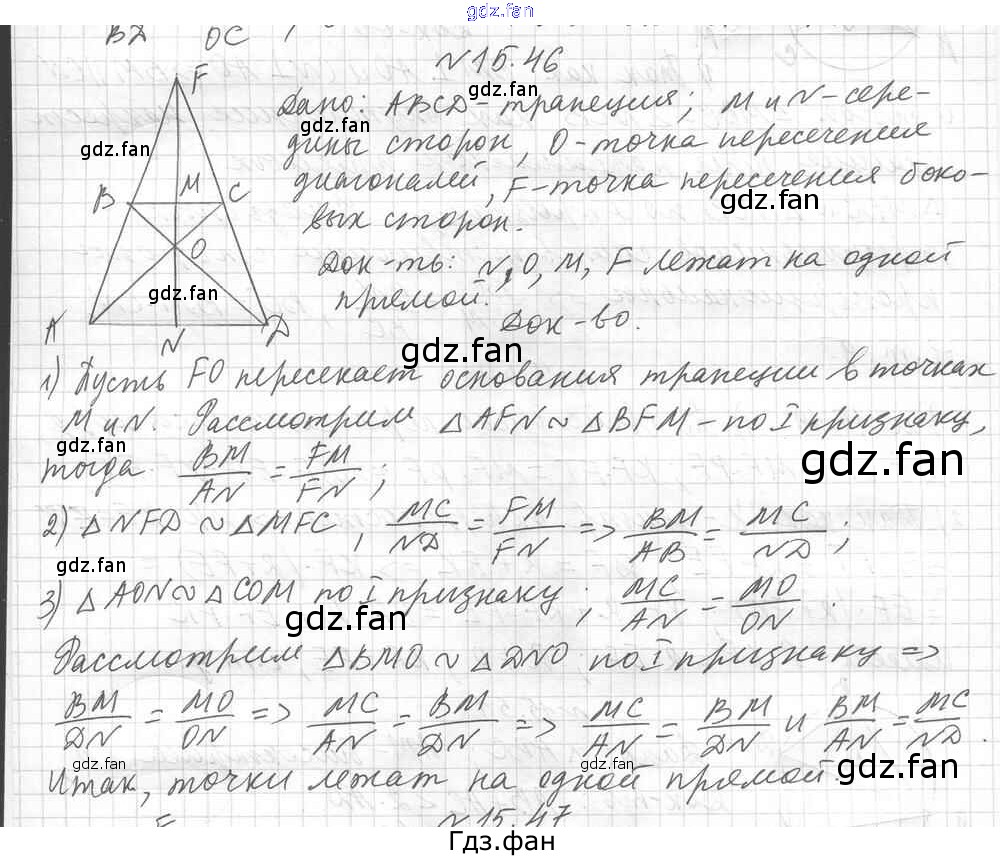 gdz.fan
BД OC
N15.46
F
Дано: ABCD-трапеция; M и N-сере-
gdz.fan
дины сторон, O-точка пересечения
gdz.fan
диагоналей, F-точка пересечения боко-
gdz.fan
B M C
вых сторон.
O
Док-ть: N, O, M, F лежат на одной
gdz.fan
прямой.
A N Д
Док-во.
gdz.fan
1) Пусть FO пересекает основания трапеции в точках
M и N. Рассмотрим △AFN ~ △BFM - по I признаку,
gdz.fan
gdz.fan
тогда BM/AN = FM/FN;
2) △NFD ~ △MFC, MC/ND = FM/FN => BM/AB = MC/ND;
gdz.fan
3) △AON ~ △COM по I признаку; MC/AN = MO/ON.
gdz.fan
gdz.fan
Рассмотрим △BMO ~ △DNO по I признаку =>
BM/DN = MO/ON => MC/AN = BM/DN => MC/AN = BM/DN и BM/AN = MC/ND.
Итак, точки лежат на одной прямой
gdz.fan
N15.47
F
Гдз.фан